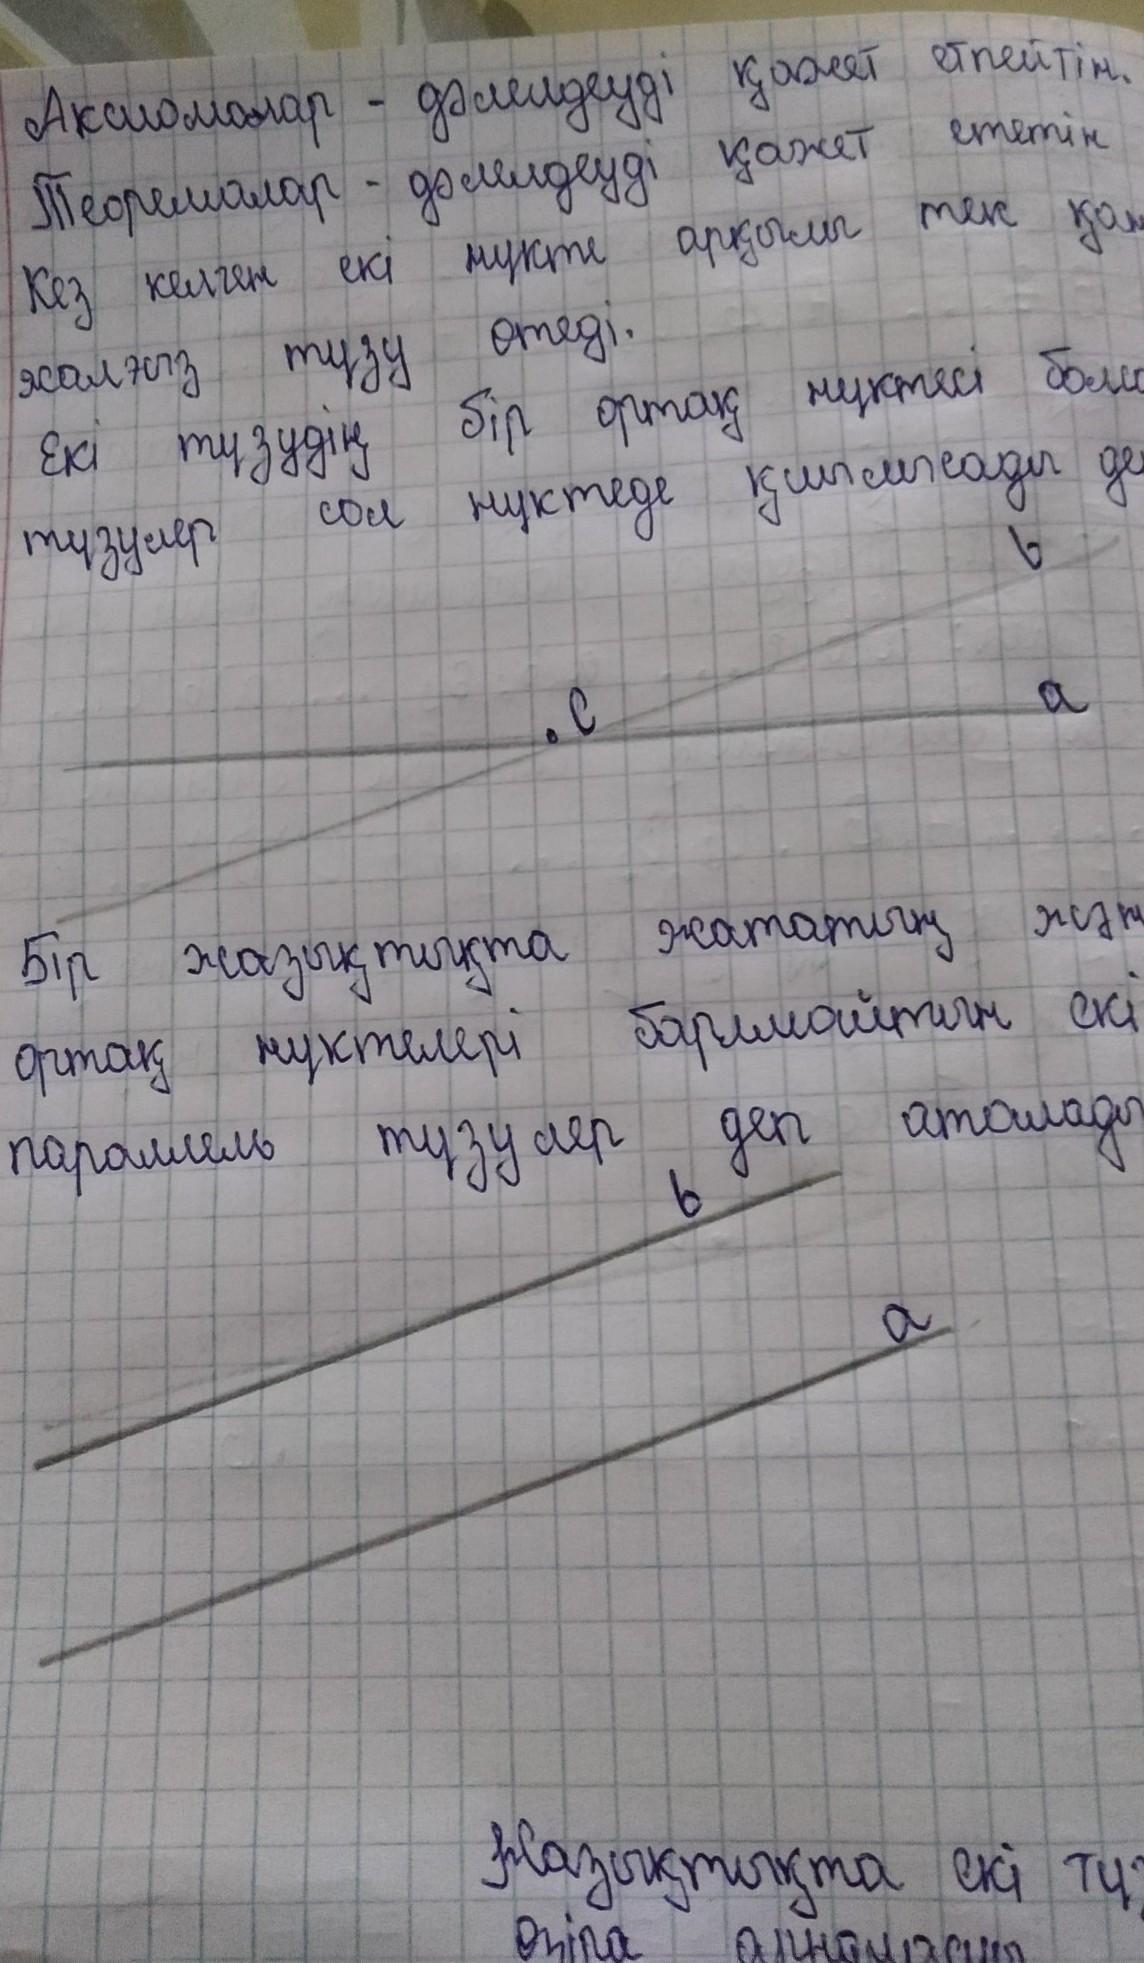 Аксиомалар - дәлелдеуді қажет етпейтін.
Теоремалар - дәлелдеуді қажет ететін
Кез келген екі нүкте арқылы тек қан
жалғыз түзу өтеді.
Екі түзудің бір ортақ нүктесі болса
түзулер сол нүктеде қиылысады де
b
C
a
Бір жазықтықта жататың жән
ортақ нүктелері болмайтын екі
параллель түзулер деп аталады
b
a
Жазықтықта екі түз
өзіра